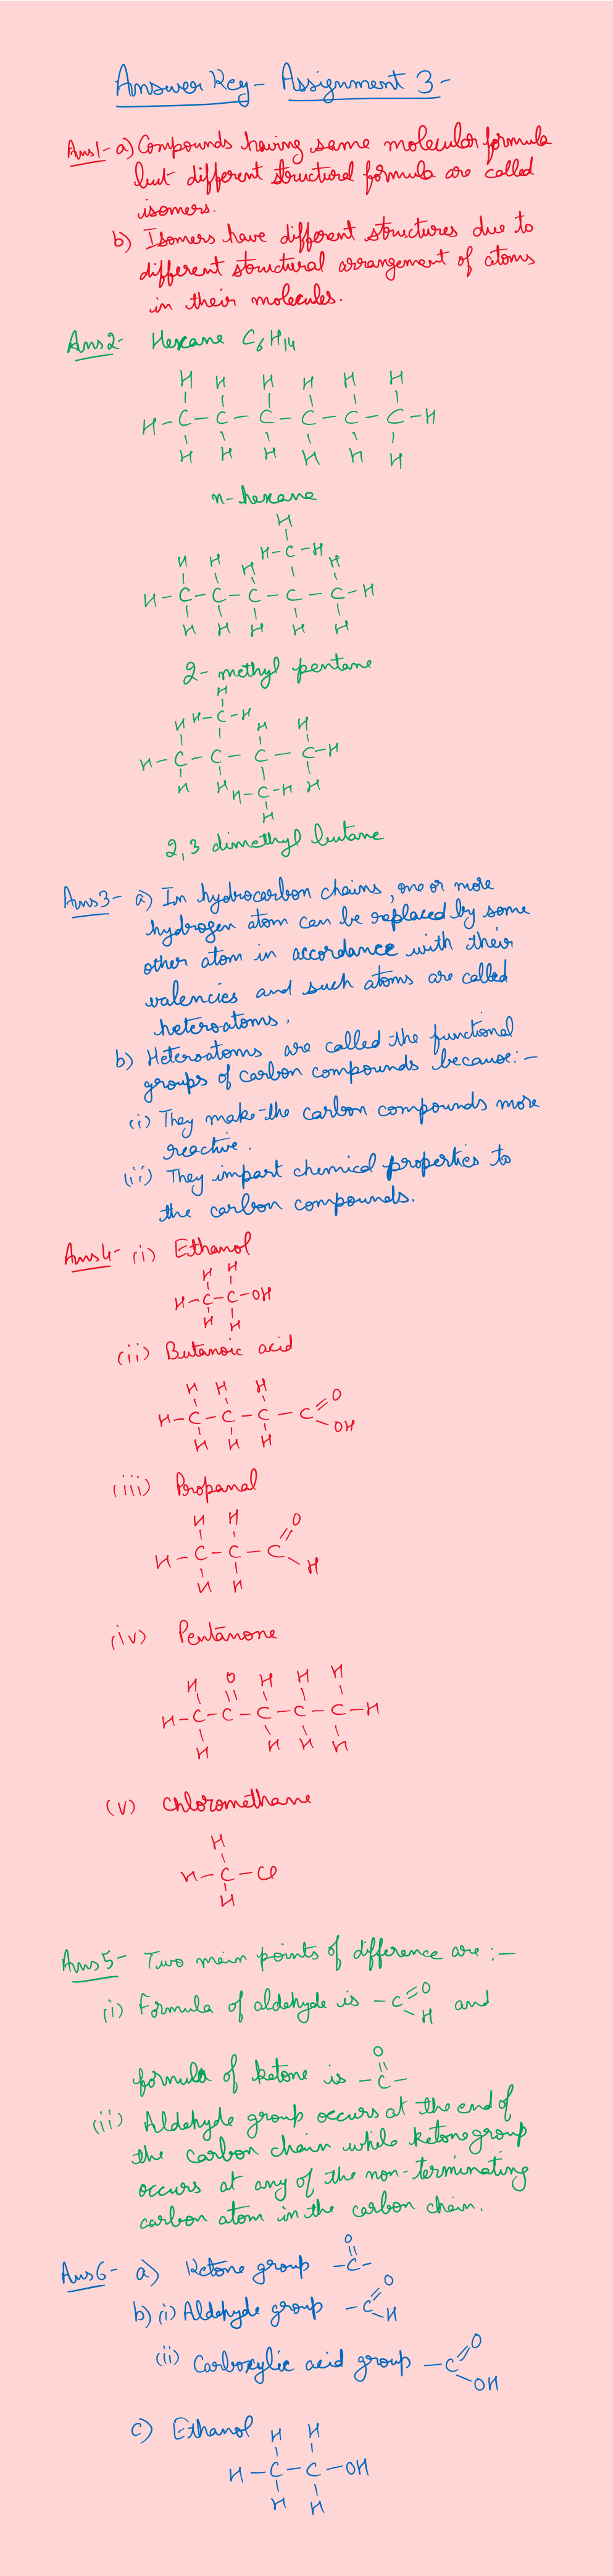 Answer Key- Assignment 3-
Ans1- a) Compounds having same molecular formula
but different structural formula are called
isomers.
b) Isomers have different structures due to
different structural arrangement of atoms
in their molecules.
Ans2- Hexane C6H14
H H H H H H
H-C-C-C-C-C-C-H
H H H H H H
n-hexane
H
H-C-H
H H H H
H-C-C-C-C-C-H
H H H H H
2-methyl pentane
H
H H-C-H H H
H-C-C-C-C-H
H H H-C-H H
H
2,3 dimethyl butane
Ans3- a) In hydrocarbon chains, one or more
hydrogen atom can be replaced by some
other atom in accordance with their
valencies and such atoms are called
heteroatoms.
b) Heteroatoms are called the functional
groups of carbon compounds because:-
(i) They make the carbon compounds more
reactive.
(ii) They impart chemical properties to
the carbon compounds.
Ans4- (i) Ethanol
H H
H-C-C-OH
H H
(ii) Butanoic acid
H H H O
H-C-C-C-C
H H H OH
(iii) Propanal
H H O
H-C-C-C
H H H
(iv) Pentanone
H O H H H
H-C-C-C-C-C-H
H H H H
(v) Chloromethane
H
H-C-Cl
H
Ans5- Two main points of difference are:-
(i) Formula of aldehyde is -C=O H and
O
formula of ketone is -C-
(ii) Aldehyde group occurs at the end of
the carbon chain while ketone group
occurs at any of the non-terminating
carbon atom in the carbon chain.
O
Ans6- a) Ketone group -C-
b) (i) Aldehyde group -C=O H
(ii) Carboxylic acid group -C=O OH
c) Ethanol
H H
H-C-C-OH
H H